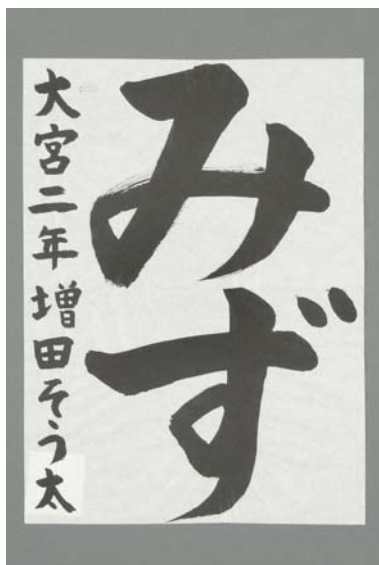 みず
大宮二年増田そう太